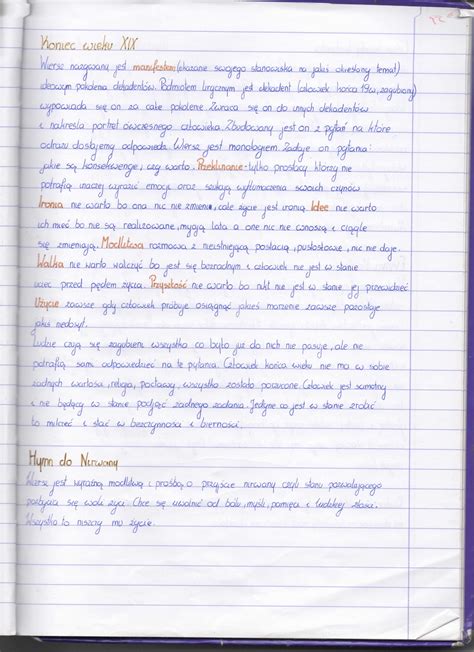 Koniec wieku XIX
Wiersz nazywany jest manifestem (ukazanie swojego stanowiska na jakiś określony temat)
ideowym pokolenia dekadentów. Podmiotem lirycznym jest dekadent (człowiek końca 19w, zagubiony)
wypowiada się on za całe pokolenie. Zwraca się on do innych dekadentów
i nakreśla portret ówczesnego człowieka. Zbudowany jest on z pytań na które
odrazu dostajemy odpowiedź. Wiersz jest monologiem. Zadaje on pytania:
jakie są konsekwencje, czy warto. Przeklinanie - tylko prostacy którzy nie
potrafią inaczej wyrazić emocji oraz szukają wytłumaczenia swoich czynów
Ironia nie warto bo ona nic nie zmienia, całe życie jest ironią. Idee nie warto
ich mieć bo nie są realizowane, mijają lata a one nic nie wnoszą i ciągle
się zmieniają. Modlitwa rozmowa z nieistniejącą postacią, pustosłowie, nic nie daje.
Walka nie warto walczyć bo jest się bezradnym i człowiek nie jest w stanie
uciec przed pędem życia. Przyszłość nie warto bo nikt nie jest w stanie jej przewidzieć
Użycie zawsze gdy człowiek próbuje osiągnąć jakieś marzenie zawsze pozostaje
jakiś niedosyt.
Ludzie czują się zagubieni wszystko co było już do nich nie pasuje, ale nie
potrafią sami odpowiedzieć na te pytania. Człowiek końca wieku nie ma w sobie
żadnych wartości, religia, postawy, wszystko zostało porzucone. Człowiek jest samotny
i nie będący w stanie podjąć żadnego zadania. Jedyne co jest w stanie zrobić
to milczeć i stać w bezczynności i bierności.
Hymn do Nirwany
Wiersz jest wyraźną modlitwą i prośbą o przyjście nirwany czyli stanu pozwalającego
pozbycia się woli życia. Chce się uwolnić od bólu, myśli, pamięci i ludzkiej złości.
Wszystko to niszczy mu życie.